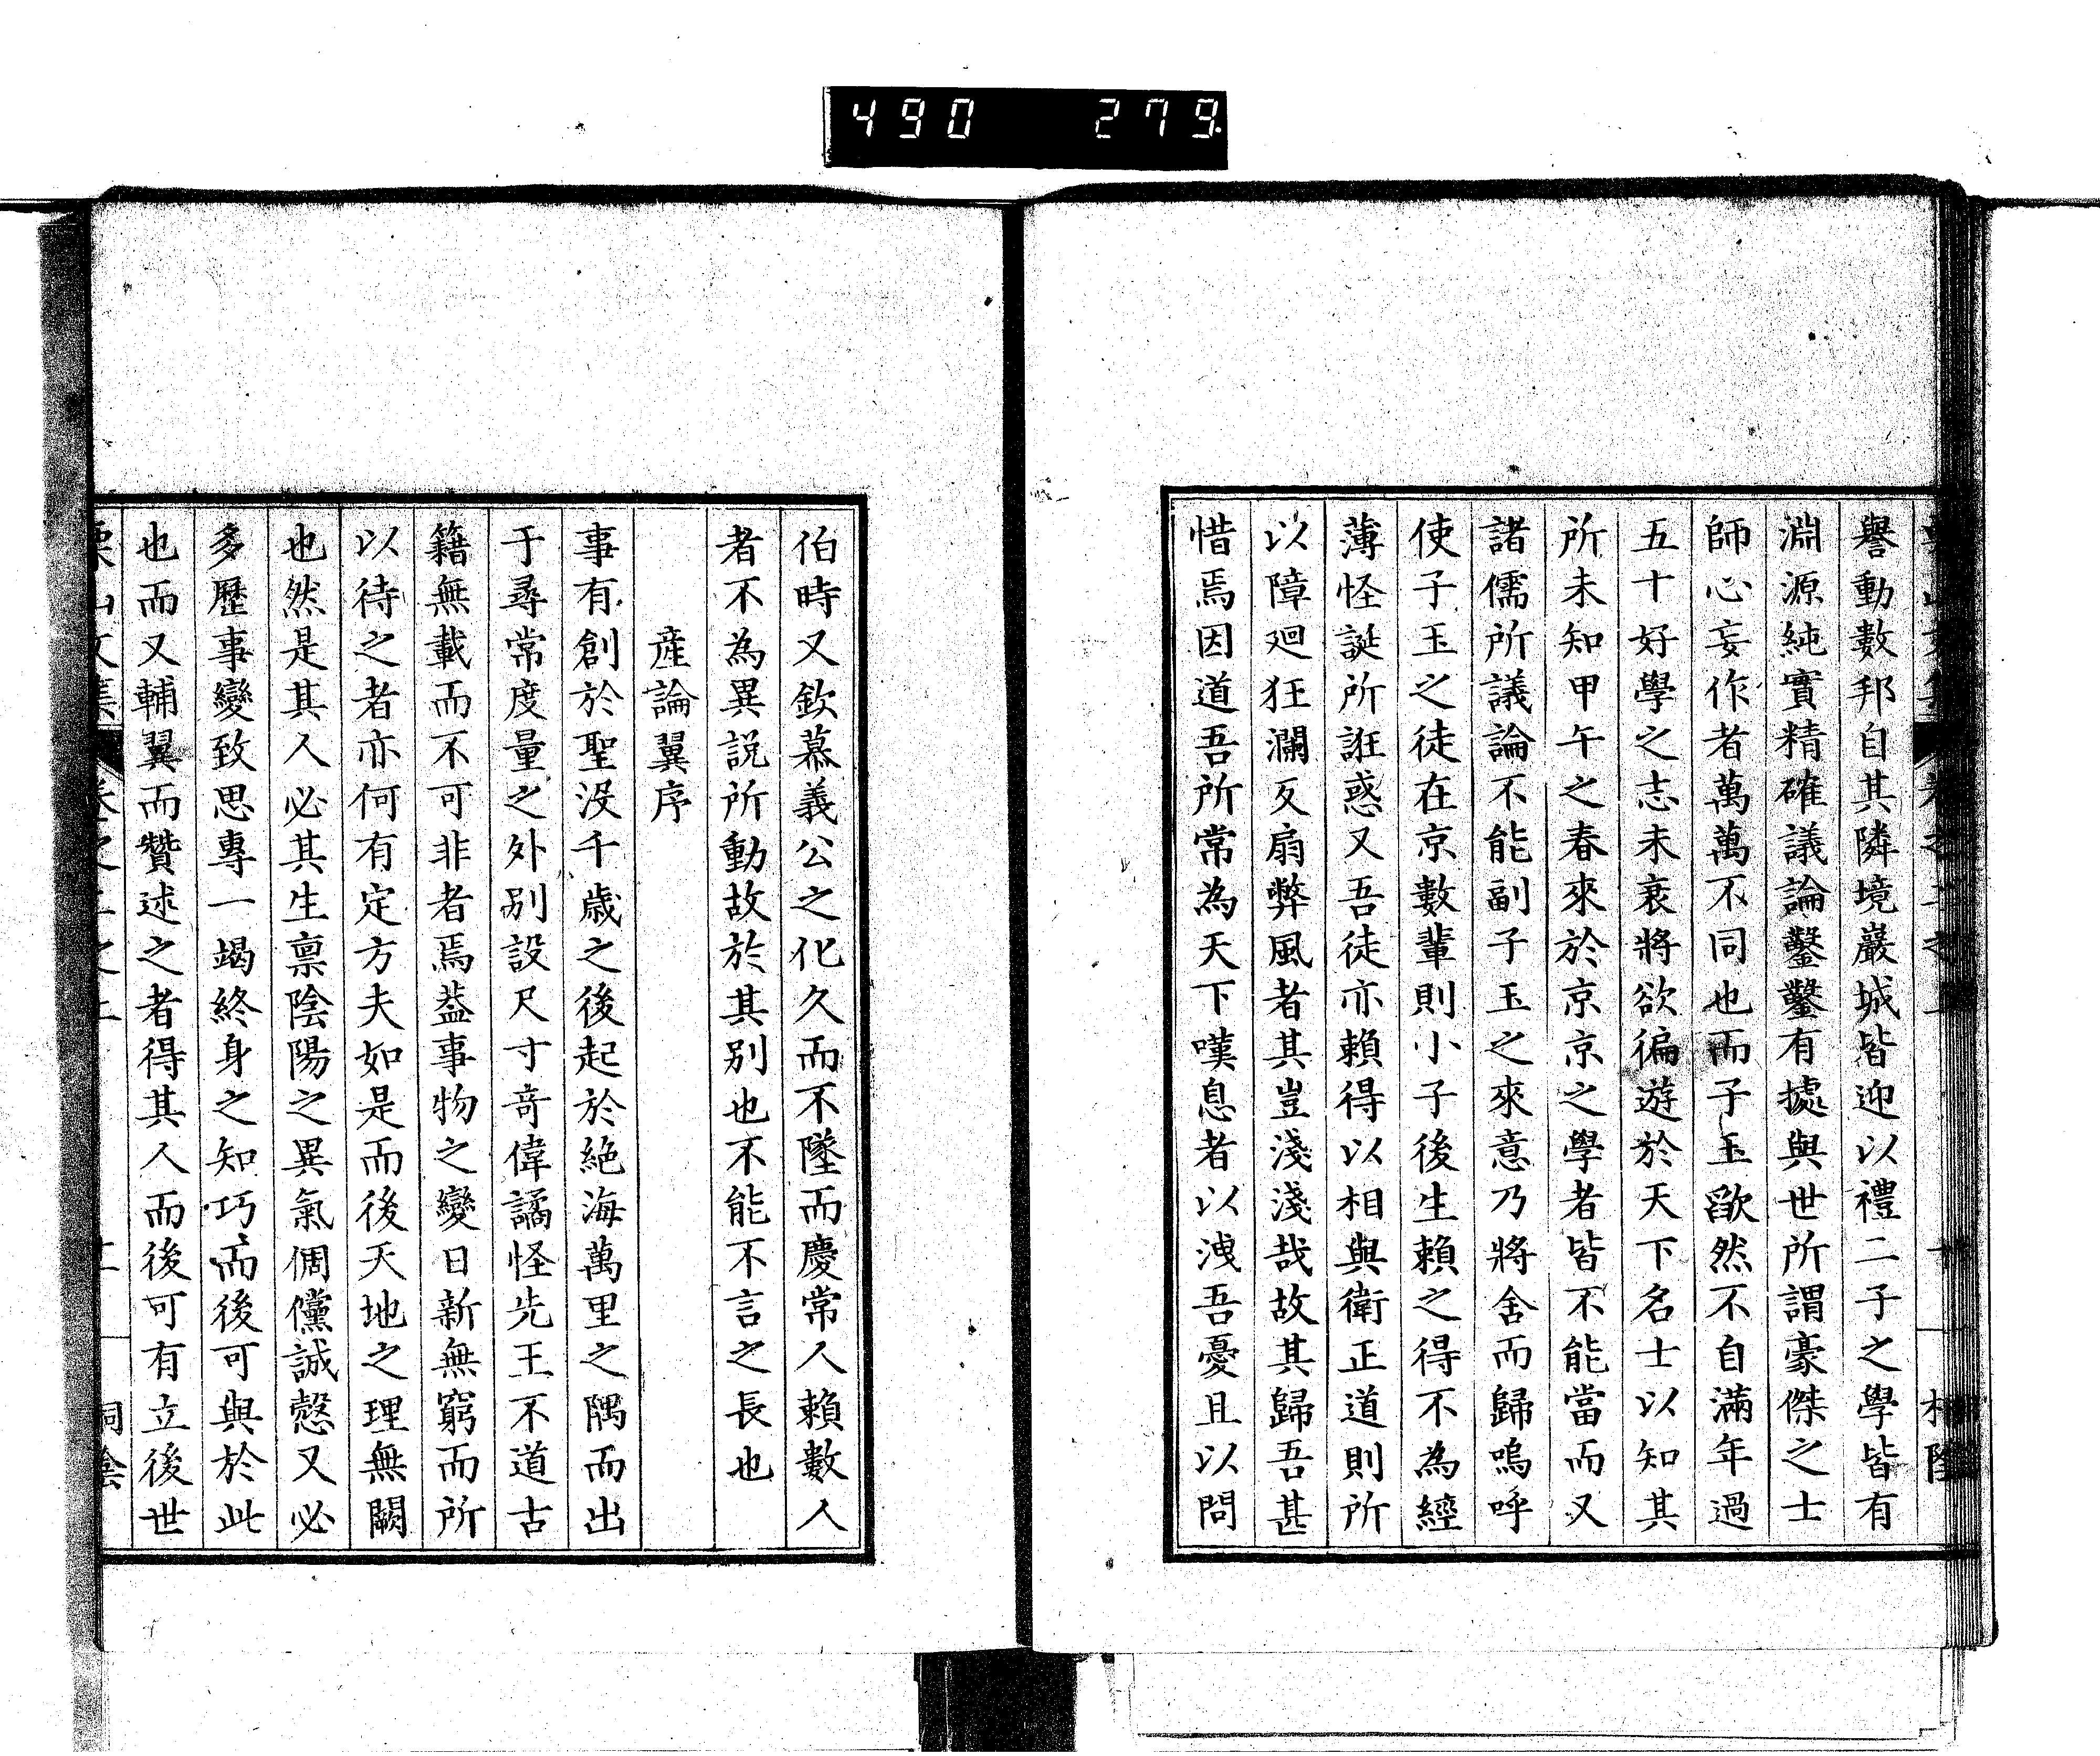 490 279
譽動數邦自其隣境巖城皆迎以禮二子之學皆有
淵源純實精確議論鑿鑿有據與世所謂豪傑之士
師心妄作者萬萬不同也而子玉歛然不自滿年過
五十好學之志未衰將欲徧遊於天下名士以知其
所未知甲午之春來於京京之學者皆不能當而又
諸儒所議論不能副子玉之來意乃將舍而歸嗚呼
使子玉之徒在京數輩則小子後生賴之得不為經
薄怪誕所誑惑又吾徒亦賴得以相與衛正道則所
以障廻狂瀾反扇弊風者其豈淺淺哉故其歸吾甚
惜焉因道吾所常為天下嘆息者以洩吾憂且以問
伯時又欽慕義公之化久而不墜而慶常人賴數人
者不為異説所動故於其別也不能不言之長也
産論翼序
事有創於聖沒千歳之後起於絶海萬里之隅而出
于尋常度量之外別設尺寸奇偉譎怪先王不道古
籍無載而不可非者焉蓋事物之變日新無窮而所
以待之者亦何有定方夫如是而後天地之理無闕
也然是其人必其生禀陰陽之異氣倜儻誠慤又必
多歷事變致思專一竭終身之知巧而後可與於此
也而又輔翼而贊述之者得其人而後可有立後世